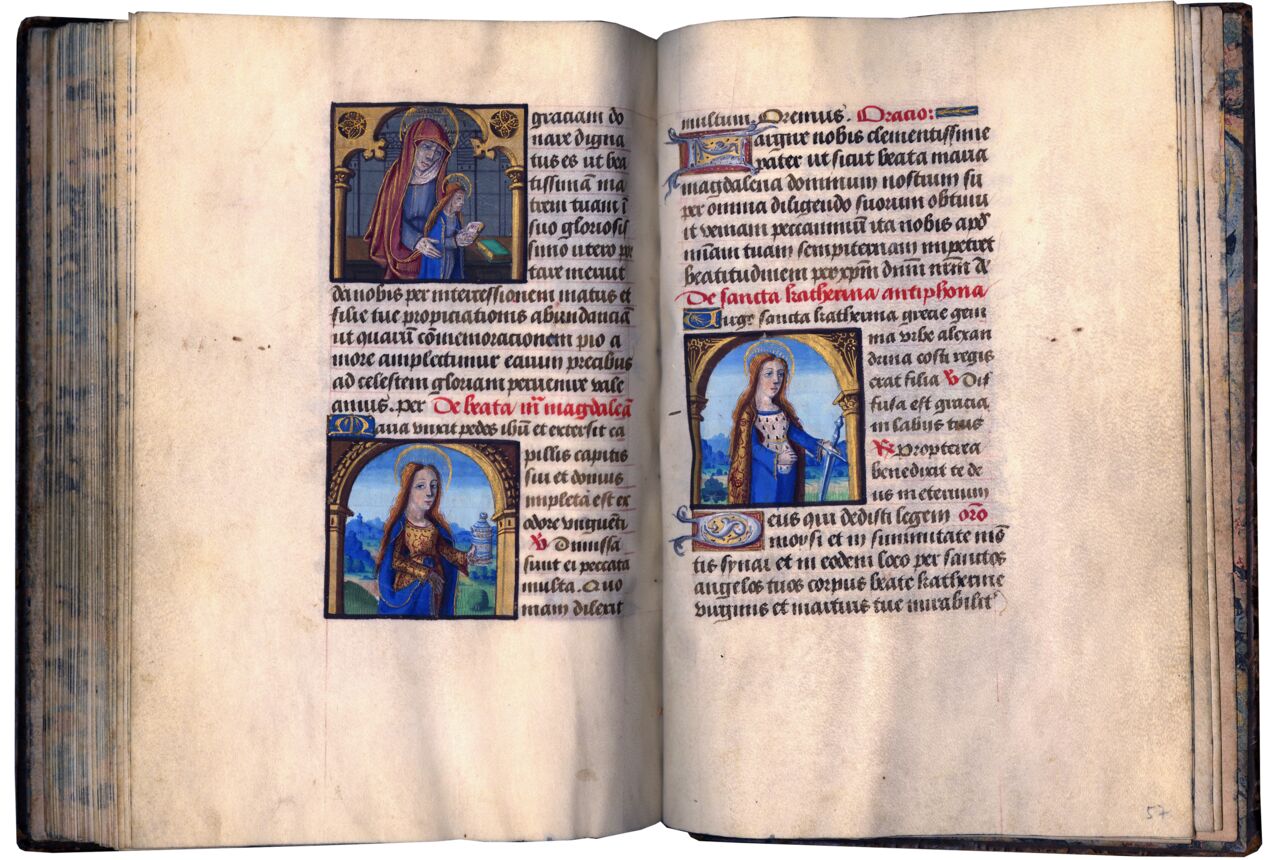 graciam do
nare digna
tus es ut bea
tissimā ma
trem tuam ī
suo gloriosis
simo utero por
tare meruit
da nobis per intercessionem matris et
filie tue propiciationis abundanciā
ut quarū cōmemorationem pio a
more amplectimur earum precibus
ad celestem gloriam peruenire vale
amus. per De beata m̄ magdaleā
Maria vnxit pedes ihū et extersit ca
pillis capitis
sui et domus
impleta est ex
odore vnguēti
℣ Dimissa
sunt ei peccata
multa. Quo
niam dilexit
multum. Oremus. Oracio:
Largire nobis clementissime
pater ut sicut beata maria
magdalena dominum nostrum su
per omnia diligendo suorum obtinu
it veniam peccaminū ita nobis apd̄
mīam tuam sempiternam impetret
beatitudinem per xpm̄ dnm̄ nrm̄ A
De sancta katherina antiphona
Virgo sancta katherina grecie gem
ma vrbe alexan
drina costi regis
erat filia ℣ Dif
fusa est gracia
in labiis tuis
℟ Propterea
benedixit te de
us in eternum
Deus qui dedisti legem oro
moysi et in summitate mō
tis synai et in eodem loco per sanctos
angelos tuos corpus beate katherine
virginis et martiris tue mirabilit'
57